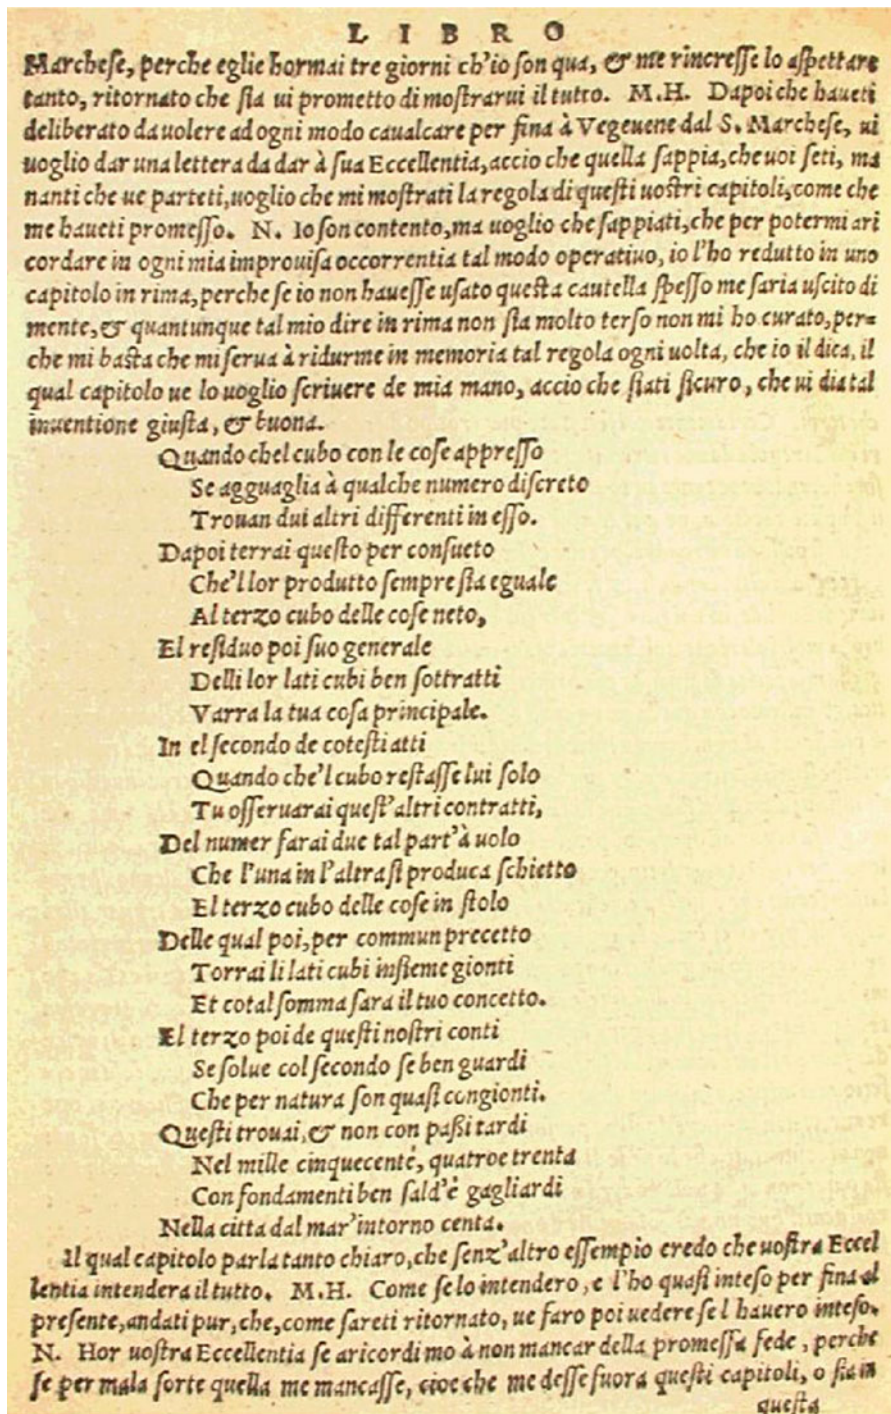 LIBRO
Marcheſe, perche eglie hormai tre giorni ch'io ſon qua, & me rincreſſe lo aſpettare
tanto, ritornato che ſia ui prometto di moſtrarui il tutto. M.H. Dapoi che haueti
deliberato da uolere ad ogni modo caualcare per fina à Vegeuene dal S. Marcheſe, ui
uoglio dar una lettera da dar à ſua Eccellentia, accio che quella ſappia, che uoi ſeti, ma
nanti che ue parteti, uoglio che mi moſtrati la regola di queſti uoſtri capitoli, come che
me haueti promeſſo. N. Io ſon contento, ma uoglio che ſappiati, che per potermi ari
cordare in ogni mia improuiſa occorrentia tal modo operatiuo, io l'ho redutto in uno
capitolo in rima, perche ſe io non haueſſe uſato queſta cautella ſpeſſo me ſaria uſcito di
mente, & quantunque tal mio dire in rima non ſia molto terſo non mi ho curato, per=
che mi baſta che mi ſerua à ridurme in memoria tal regola ogni uolta, che io il dica, il
qual capitolo ue lo uoglio ſcriuere de mia mano, accio che ſiati ſicuro, che ui dia tal
inuentione giuſta, & buona.
Quando chel cubo con le coſe appreſſo
Se agguaglia à qualche numero diſcreto
Trouan dui altri differenti in eſſo.
Dapoi terrai queſto per conſueto
Che'l lor produtto ſempre ſia eguale
Al terzo cubo delle coſe neto,
El reſiduo poi ſuo generale
Delli lor lati cubi ben ſottratti
Varra la tua coſa principale.
In el ſecondo de coteſti atti
Quando che'l cubo reſtaſſe lui ſolo
Tu oſſeruarai queſt'altri contratti,
Del numer farai due tal part'à uolo
Che l'una in l'altra ſi produca ſchietto
El terzo cubo delle coſe in ſtolo
Delle qual poi, per commun precetto
Torrai li lati cubi inſieme gionti
Et cotal ſomma ſara il tuo concetto.
El terzo poi de queſti noſtri conti
Se ſolue col ſecondo ſe ben guardi
Che per natura ſon quaſi congionti.
Queſti trouai, & non con paßi tardi
Nel mille cinquecentè, quatroe trenta
Con fondamenti ben ſald'è gagliardi
Nella citta dal mar'intorno centa.
Il qual capitolo parla tanto chiaro, che ſenz'altro eſſempio credo che uoſtra Eccel
lentia intendera il tutto. M.H. Come ſe lo intendero, e l'ho quaſi inteſo per fina al
preſente, andati pur, che, come ſareti ritornato, ue faro poi uedere ſe l hauero inteſo.
N. Hor uoſtra Eccellentia ſe aricordi mo à non mancar della promeſſa fede, perche
ſe per mala ſorte quella me mancaſſe, cioe che me deſſe fuora queſti capitoli, o ſia in
queſta